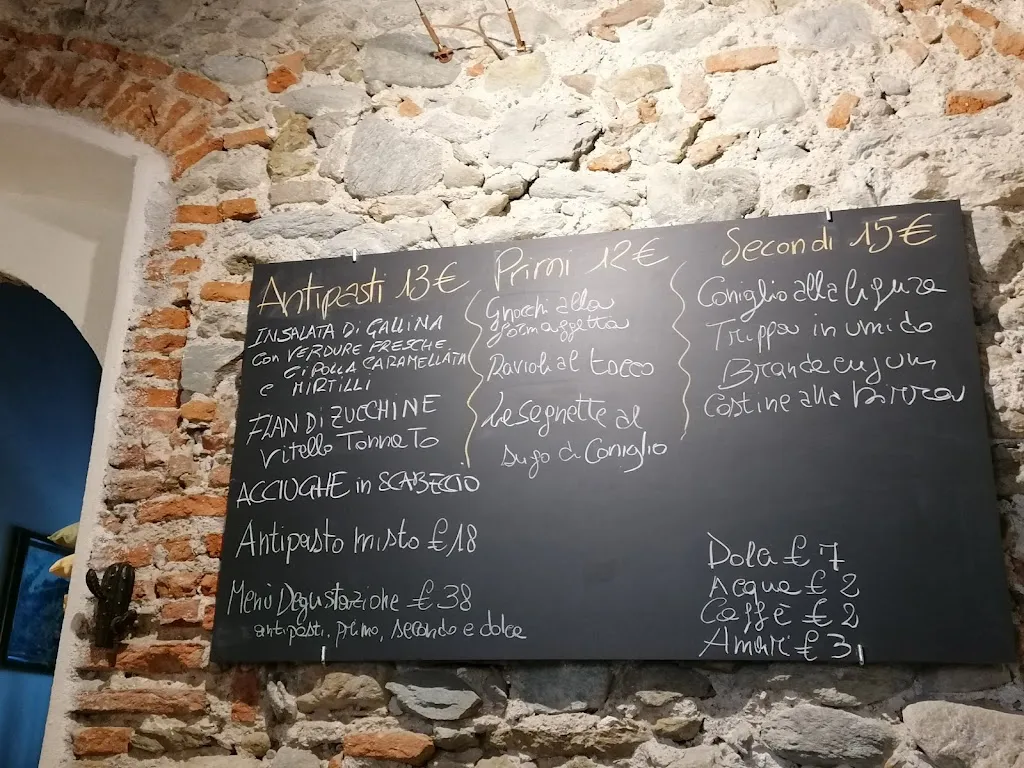 Antipasti 13€
INSALATA DI GALLINA
con VERDURE FRESCHE
CIPOLLA CARAMELLATA
e MIRTILLI
FLAN DI ZUCCHINE
Vitello Tonnato
ACCIUGHE in SCABECCIO
Antipasto misto £18
Menù Degustazione £38
antipasti, primo, secondo e dolce
Primi 12€
Gnocchi alla
formaggetta
Ravioli al tocco
Lasagnette al
sugo di Coniglio
Secondi 15€
Coniglio alla ligure
Trippa in umido
Brandacujun
Costine alla birra
Dolci £7
Acqua £2
Caffè £2
Amari £3